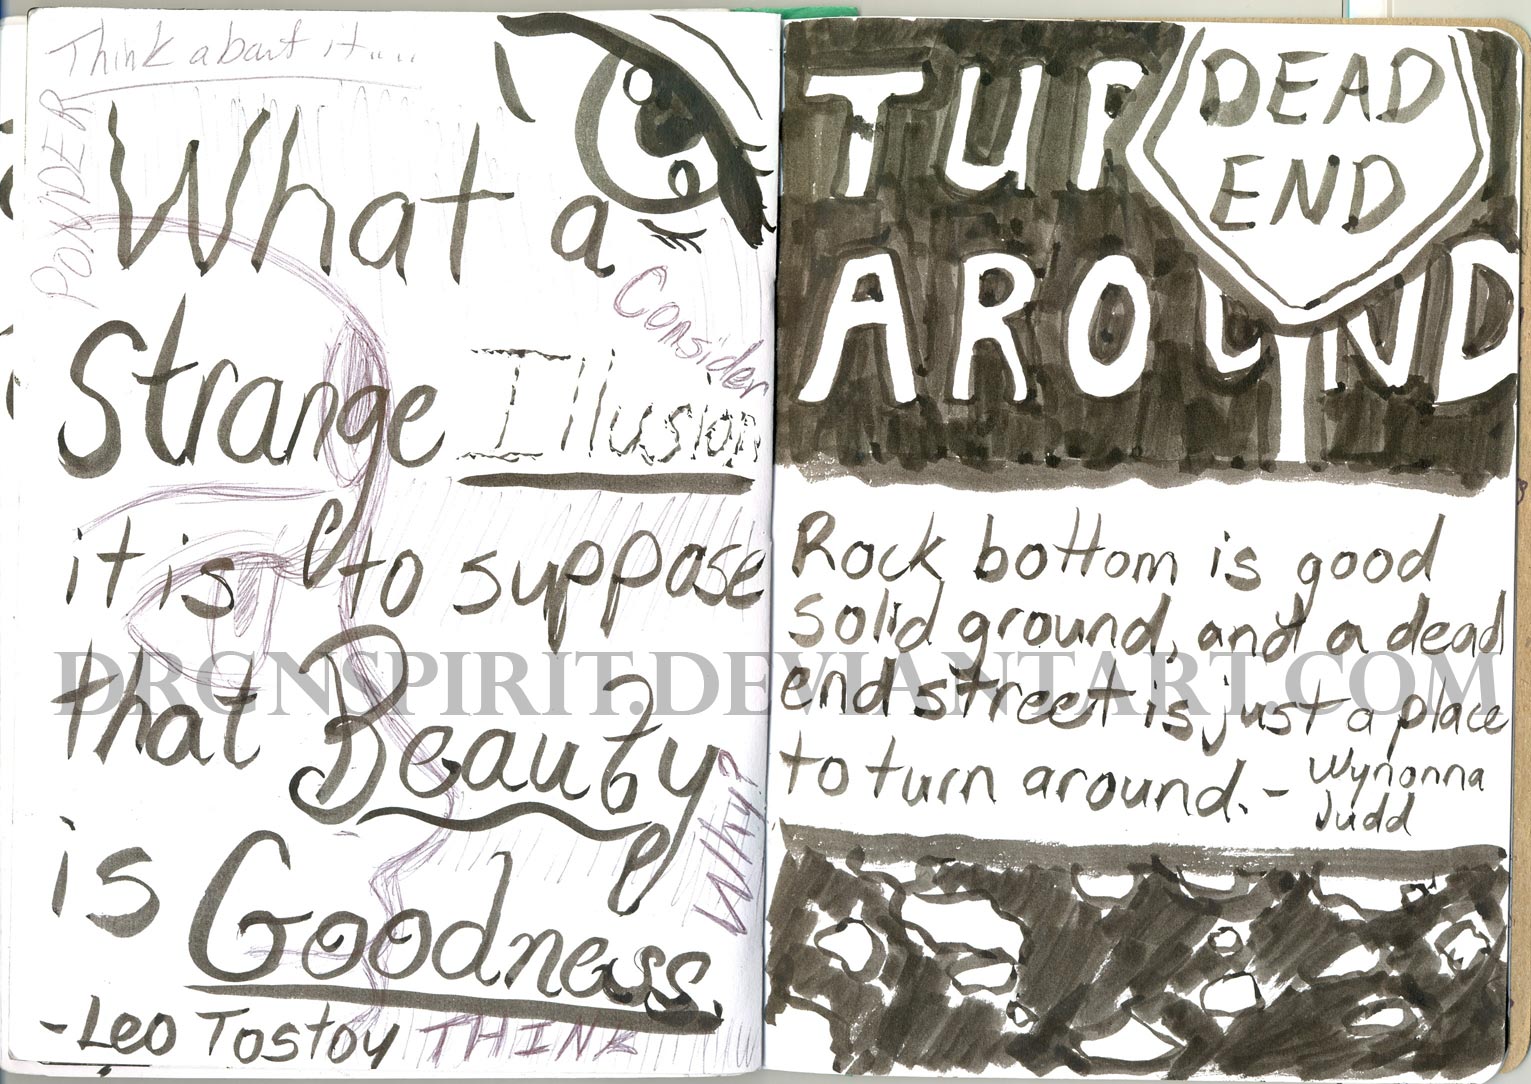 Think about it....
PONDER
What a
Consider
Strange Illusion
it is to suppose
that Beauty
Why?
is Goodness.
-Leo Tostoy THINK
TUR
DEAD
END
AROUND
Rock bottom is good
solid ground, and a dead
end street is just a place
to turn around. - Wynonna
Judd
DRGNSPIRIT.DEVIANTART.COM